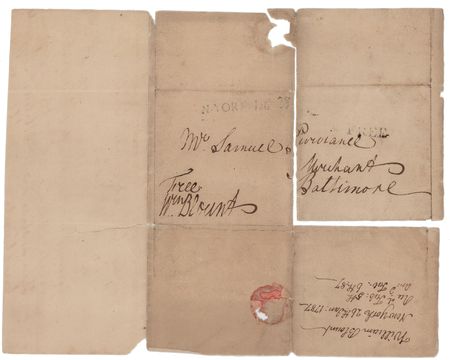 N.YORK
FREE
Mr. Samuel Purviance
Merchant
Baltimore
Free
Wm. Blount
William Blount
New York 26th Jan: 1787
Recd. Feb: 5th
And. Feb: 6th 87